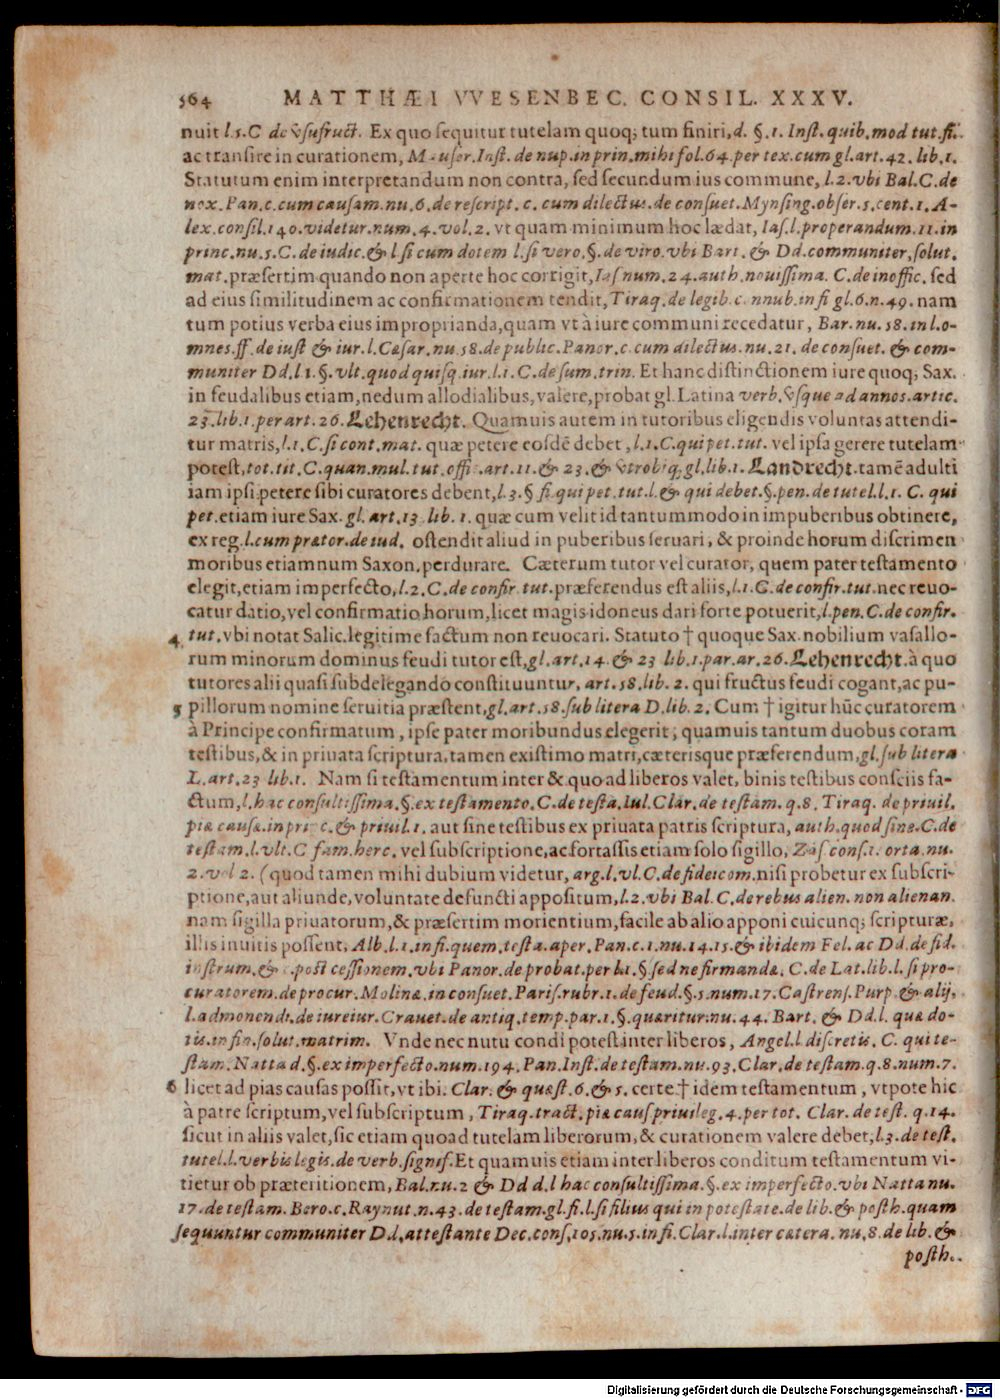 564 MATTHÆI VVESENBEC. CONSIL. XXXV.
nuit l.5.C de vsufruct. Ex quo sequitur tutelam quoq; tum finiri, d. §. 1. Inst. quib. mod tut. fi.
ac transire in curationem, Inst. de nup. in prin. mihi fol. 64. per tex. cum gl. art. 42. lib. 1.
Statutum enim interpretandum non contra, sed secundum ius commune, l. 2. vbi Bal. C. de
nox. Pan. c. cum causam. nu. 6. de rescript. c. cum dilectus. de consuet. Mynsing. obser. 5. cent. 1. A-
lex. consil. 140. videtur. num. 4. vol. 2. vt quam minimum hoc lædat, Ias. l. properandum. 11. in
princ. nu. 5. C. de iudic. & l si cum dotem l. si vero. §. de viro. vbi Bart. & Dd. communiter, solut.
mat. præsertim quando non aperte hoc corrigit, Ias num. 24. auth. nouissima. C. de inoffic. sed
ad eius similitudinem ac confirmationem tendit, Tiraq. de legib. c nnub. in fi gl. 6. n. 49. nam
tum potius verba eius improprianda, quam vt à iure communi recedatur, Bar. nu. 58. in l. o-
mnes. ff. de iust & iur. l. Cæsar. nu. 58. de public. Panor. c. cum dilectus. nu. 21. de consuet. & com-
muniter Dd. l 1. §. vlt. quod quisq. iur. l. 1. C. de sum. trin. Et hanc distinctionem iure quoq; Sax.
in feudalibus etiam, nedum allodialibus, valere, probat gl. Latina verb. vsque ad annos. artic.
23. lib. 1. per art. 26. Lehenrecht. Quamuis autem in tutoribus eligendis voluntas attendi-
tur matris, l. 1. C. si cont. mat. quæ petere eosdē debet, l. 1. C. qui pet. tut. vel ipsa gerere tutelam
potest, tot. tit. C. quan. mul. tut. offi. art. 11. & 23. & vtrobiq; gl. lib. 1. Landrecht. tamē adulti
iam ipsi petere sibi curatores debent, l. 3. § fi. qui pet. tut. l. & qui debet. §. pen. de tutel. l. 1. C. qui
pet. etiam iure Sax. gl. art. 13 lib. 1. quæ cum velit id tantummodo in impuberibus obtinere,
ex reg. l. cum prætor. de iud. ostendit aliud in puberibus seruari, & proinde horum discrimen
moribus etiamnum Saxon. perdurare. Cæterum tutor vel curator, quem pater testamento
elegit, etiam imperfecto, l. 2. C. de confir tut. præferendus est aliis, l. 1. C. de confir. tut. nec reuo-
catur datio, vel confirmatio horum, licet magis idoneus dari forte potuerit, l. pen. C. de confir.
4 tut. vbi notat Salic. legitime factum non reuocari. Statuto † quoque Sax. nobilium vasallo-
rum minorum dominus feudi tutor est, gl. art. 14. & 23 lib. 1. par. ar. 26. Lehenrecht. à quo
tutores alii quasi subdelegando constituuntur, art. 58. lib. 2. qui fructus feudi cogant, ac pu-
5 pillorum nomine seruitia præstent, gl. art. 58. sub litera D. lib. 2. Cum † igitur hūc curatorem
à Principe confirmatum, ipse pater moribundus elegerit, quamuis tantum duobus coram
testibus, & in priuata scriptura, tamen existimo matri, cæterisque præferendum, gl. sub litera
L. art. 23 lib. 1. Nam si testamentum inter & quo ad liberos valet, binis testibus consciis fa-
ctum, l. hac consultissima. §. ex testamento. C. de testa. Iul. Clar. de testam. q. 8. Tiraq. de priuil.
piæ causæ. in pri c. & priuil. 1. aut sine testibus ex priuata patris scriptura, auth. quod sine. C. de
testam. l. vlt. C fam. herc. vel subscriptione, ac fortassis etiam solo sigillo, Zas cons. 1. orta. nu.
2. vol 2. (quod tamen mihi dubium videtur, arg. l. vl. C. de fideicom. nisi probetur ex subscri-
ptione, aut aliunde, voluntate defuncti appositum, l. 2. vbi Bal. C. de rebus alien. non alienan.
nam sigilla priuatorum, & præsertim morientium, facile ab alio apponi cuicunq; scripturæ,
illis inuitis possent, Alb. l. 1. in fi. quem. testa. aper. Pan. c. 1. nu. 14. 15. & ibidem Fel. ac Dd. de fid.
instrum. & c. post cessionem. vbi Panor. de probat. per l. 1. § sed ne firmandæ. C. de Lat. lib. l. si pro-
curatorem. de procur. Molinæ. in consuet. Paris. rubr. 1. de feud. §. 5. num. 17. Castrens. Purp. & alij,
l. admonendi. de iureiur. Crauet. de antiq. temp. par. 1. §. quæritur. nu. 44. Bart. & Dd. l. quæ do-
tis. in fin. solut. matrim. Vnde nec nutu condi potest inter liberos, Angel. l. discretis. C. qui te-
stam. Natta d. §. ex imperfecto. num. 194. Pan. Inst. de testam. nu. 93. Clar. de testam. q. 8. num. 7.
6 licet ad pias causas possit, vt ibi. Clar. & quæst. 6. & 5. certe † idem testamentum, vtpote hic
à patre scriptum, vel subscriptum, Tiraq. tract. piæ caus priuileg. 4. per tot. Clar. de test. q. 14.
sicut in aliis valet, sic etiam quoad tutelam liberorum, & curationem valere debet, l. 3. de test.
tutel. l. verbis legis. de verb. signif. Et quamuis etiam inter liberos conditum testamentum vi-
tietur ob præteritionem, Bal. r. u. 2 & Dd d. l hac consultissima. §. ex imperfecto. vbi Natta nu.
17. de testam. Bero. c. Raynut. n. 43. de testam. gl. fi. l. si filius qui in potestate. de lib. & posth. quam
sequuntur communiter Dd. attestante Dec. cons. 105. nu. 5. in fi. Clar. l. inter cætera. nu. 8. de lib. &
posth.
Digitalisierung gefördert durch die Deutsche Forschungsgemeinschaft - DFG